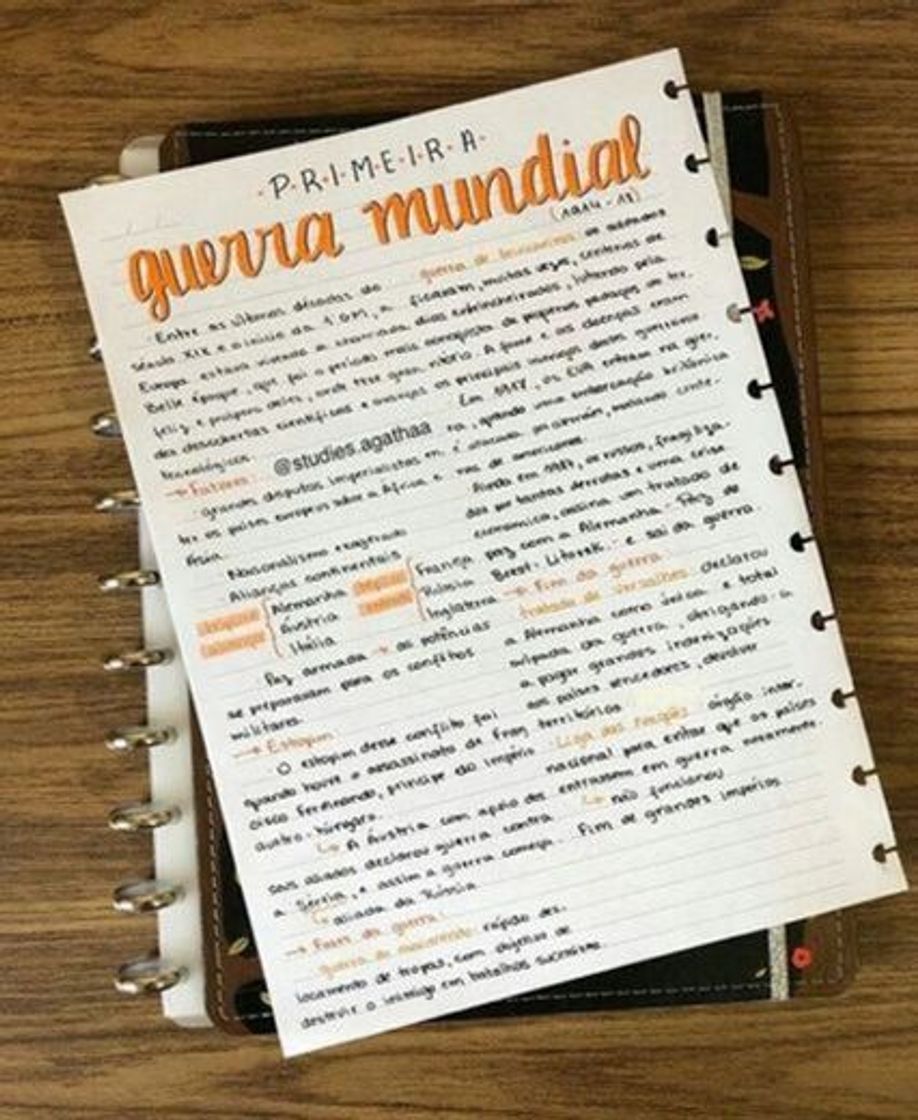 PRIMEIRA
guerra mundial
(1914-18)
Entre as últimas décadas do
século XIX e o início da 1ª GM, a
Europa estava vivendo a chamada
Belle Époque, que foi o período mais
feliz e próspero deles, onde teve gran-
des descobertas científicas e avanços
tecnológicos.
@studies.agathaa
→ Fatores:
grandes disputas imperialistas en-
tre os países europeus sobre a África e
Ásia.
Nacionalismo exagerado
Alianças continentais
Alemanha
Áustria
Itália
França
Rússia
Inglaterra
Paz armada → as potências
se preparavam para os conflitos
militares.
→ Estopim:
O estopim desse conflito foi
quando houve o assassinato de Fran-
cisco Ferdinando, príncipe do império
austro-húngaro.
↳ A Áustria com apoio dos
seus aliados declarou guerra contra
a Sérvia, e assim a guerra começa.
↳ aliada da Rússia
→ Fases da guerra:
guerra de movimento: rápido des-
locamento de tropas, com objetivo de
destruir o inimigo em batalhas sucessivas
guerra de trincheiras: os soldados
ficavam, muitas vezes, centenas de
dias entrincheirados, lutando pela
conquista de pequenos pedaços de te-
rritório. A fome e as doenças eram
os principais inimigos desses guerreiros
Em 1917, os EUA entram na guer-
ra, quando uma embarcação britânica
é atacada por alemães, matando cente-
nas de americanos.
Ainda em 1917, os russos, fragiliza-
dos por tantas derrotas e uma crise
econômica, assina um tratado de
paz com a Alemanha - Paz de
Brest-Litovsk - e sai da guerra.
→ Fim da guerra
tratado de Versalhes: declarou
a Alemanha como única e total
culpada da guerra, obrigando-a
a pagar grandes indenizações
aos países vencedores, devolver
territórios
Liga das Nações: órgão inter-
nacional para evitar que os países
entrassem em guerra novamente.
↳ não funcionou
Fim de grandes impérios